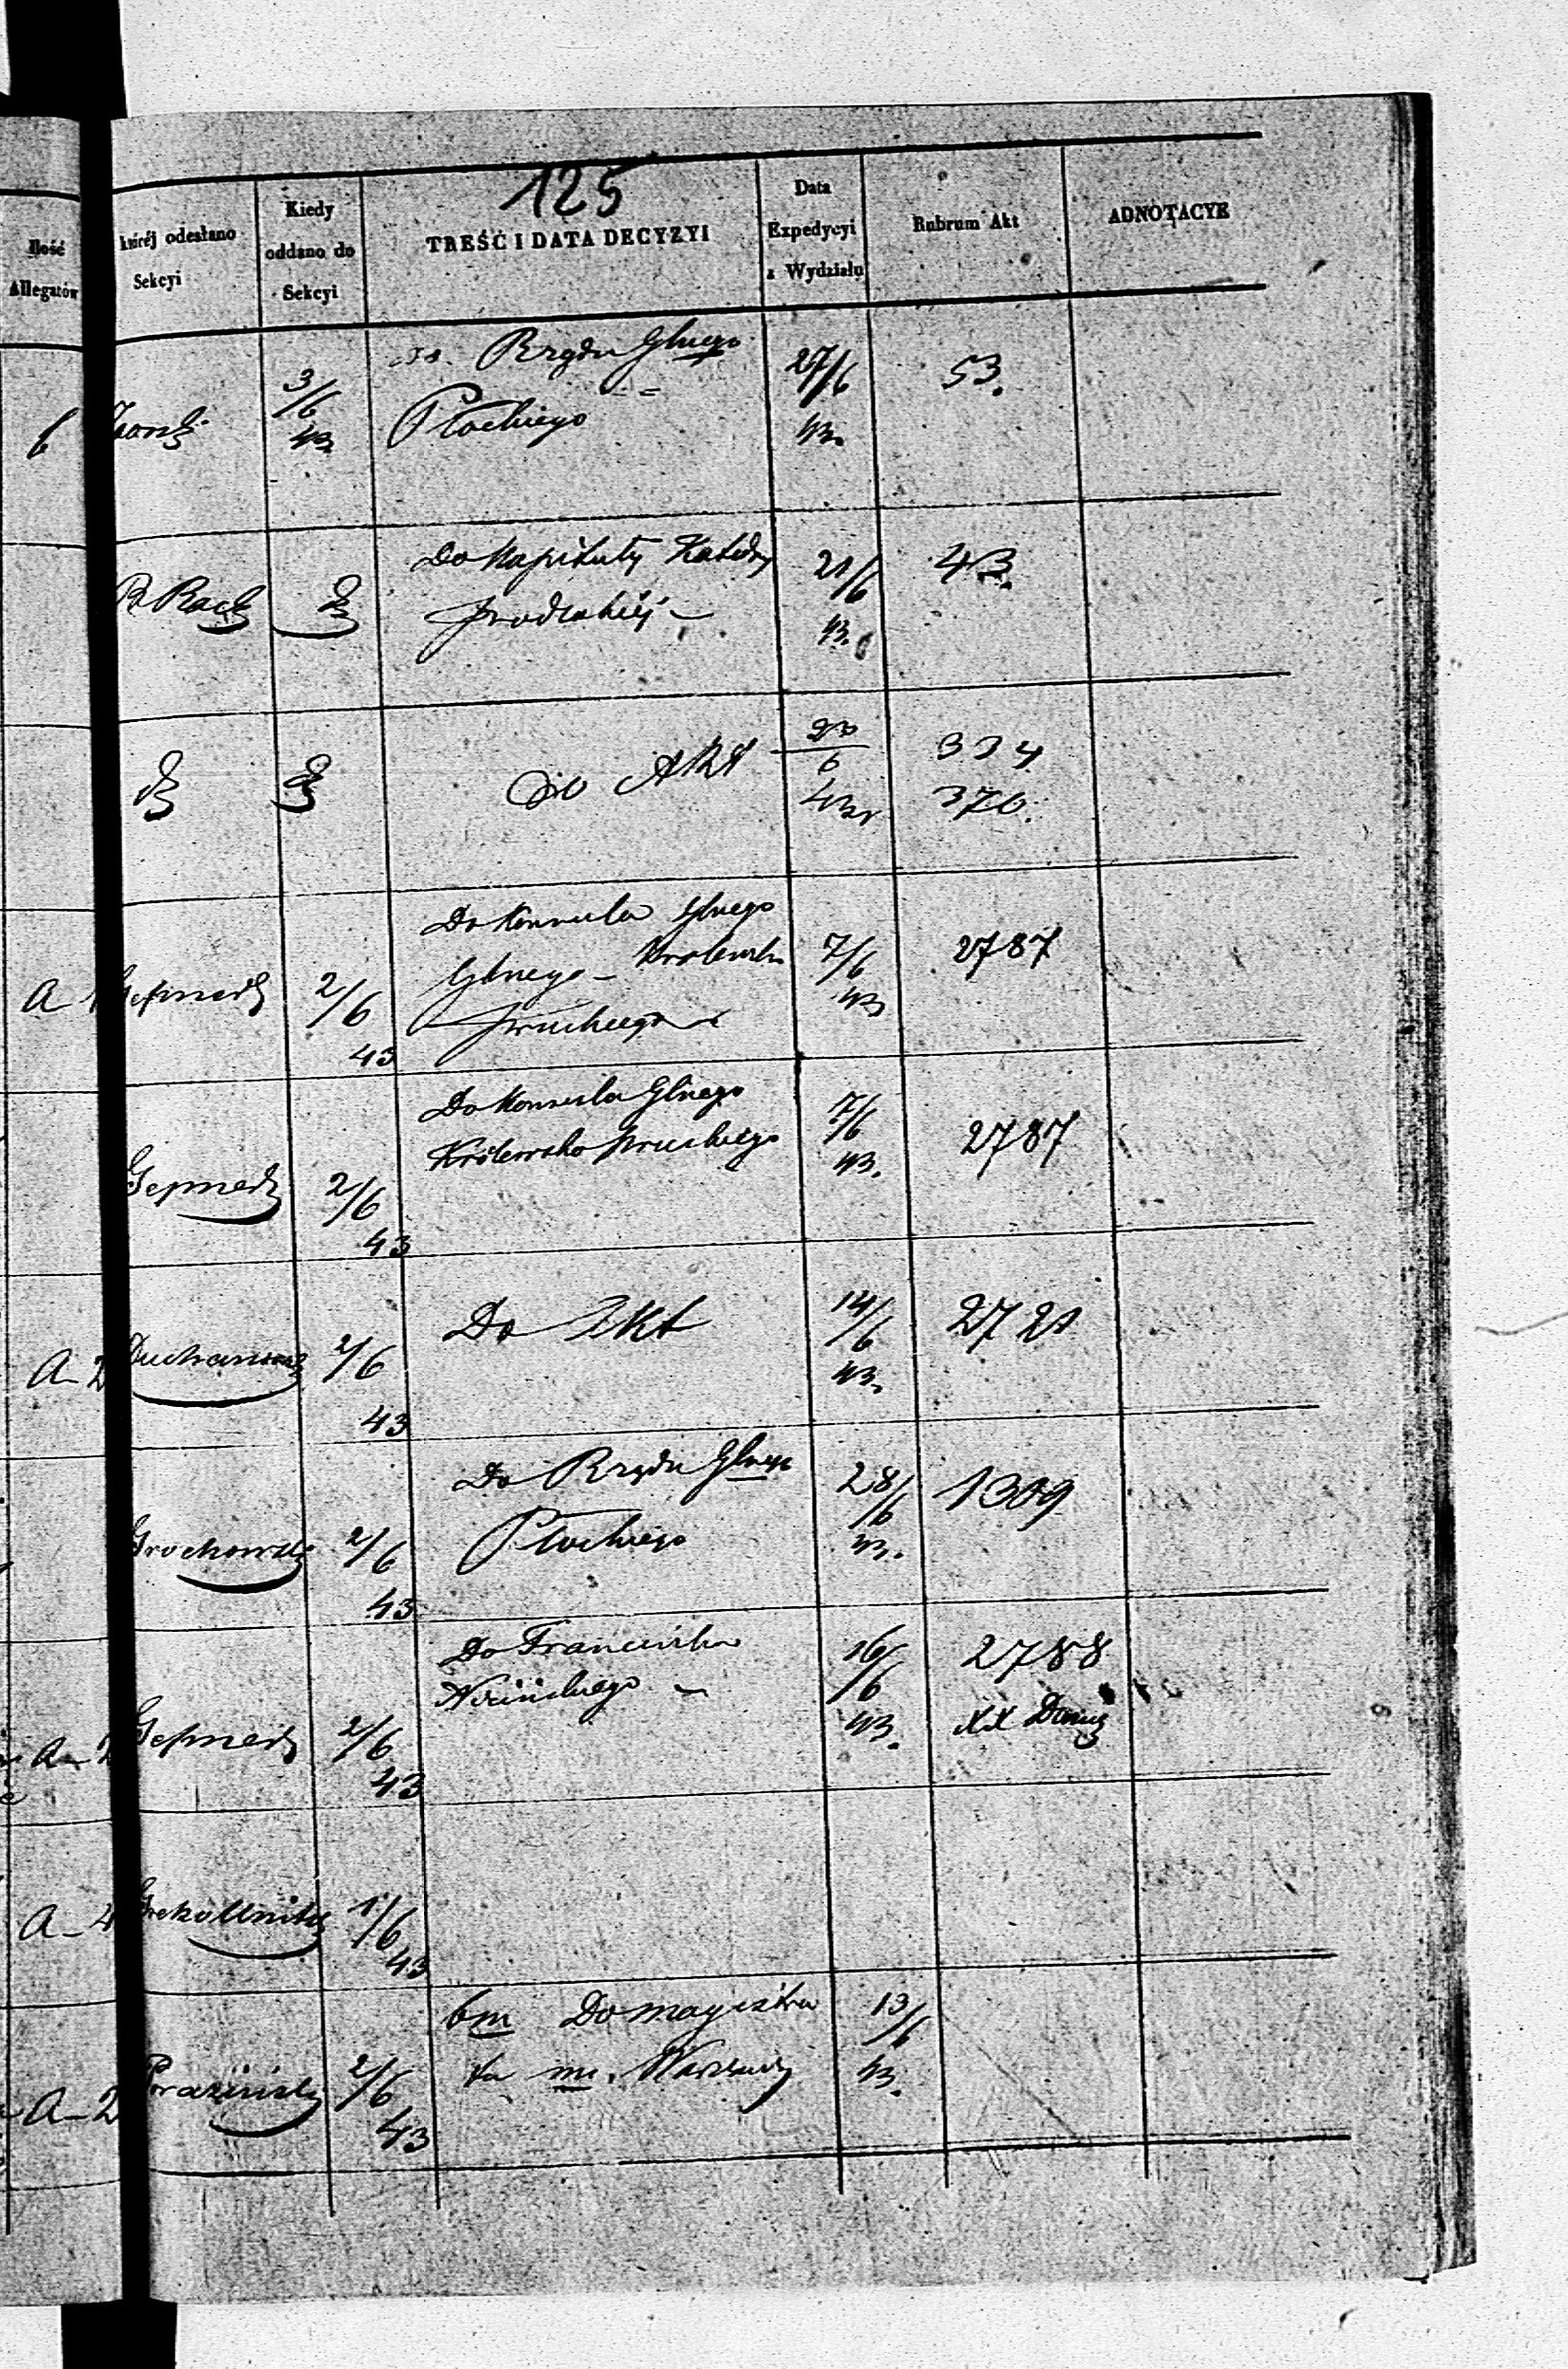 125
Ilość
Allegatów
której odesłano
Sekcyi
Kiedy
oddano do
Sekcyi
TREŚĆ I DATA DECYZYI
Data
Expedycyi
z Wydziału
Rubrum Akt
ADNOTACYE
6
3/6
43
Rządu Glnego
Płockiego
27/6
43.
53.
B. Rack
Do Kapituły Katedry
Podlaskiej
21/6
43.
43.
Do Akt
20/6
43
334
370.
A
Gepnerd
2/6
43
Do Konsula Glnego
Glnego Krolewsko
Pruskiego
7/6
43
2787
Gepnerd
2/6
43
Do Konsula Glnego
Królewsko Pruskiego
7/6
43.
2787
A - 2
2/6
43
Do Akt
14/6
43.
2721
Grochowski
2/6
43
Do Rządu Glnego
Płockiego
28/6
43.
1309
A - 2
Gepnerd
2/6
43
Do Franciszka
16/6
43.
2788
XX
A - 4
1/6
43
A - 2
Poraziński
2/6
43
6m Do magistra
ta m. Warszawy
13/6
43.